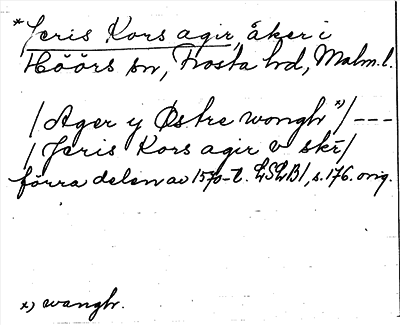 *Jeris Kors agir, åker i
Höörs sn, Frosta hd, Malm. l.
/Ager y Østre wongh *)/ ---
/Jeris Kors agir v skr/
förra delen av 1570-t. LSLB1, s. 176. orig.
*) wangh.